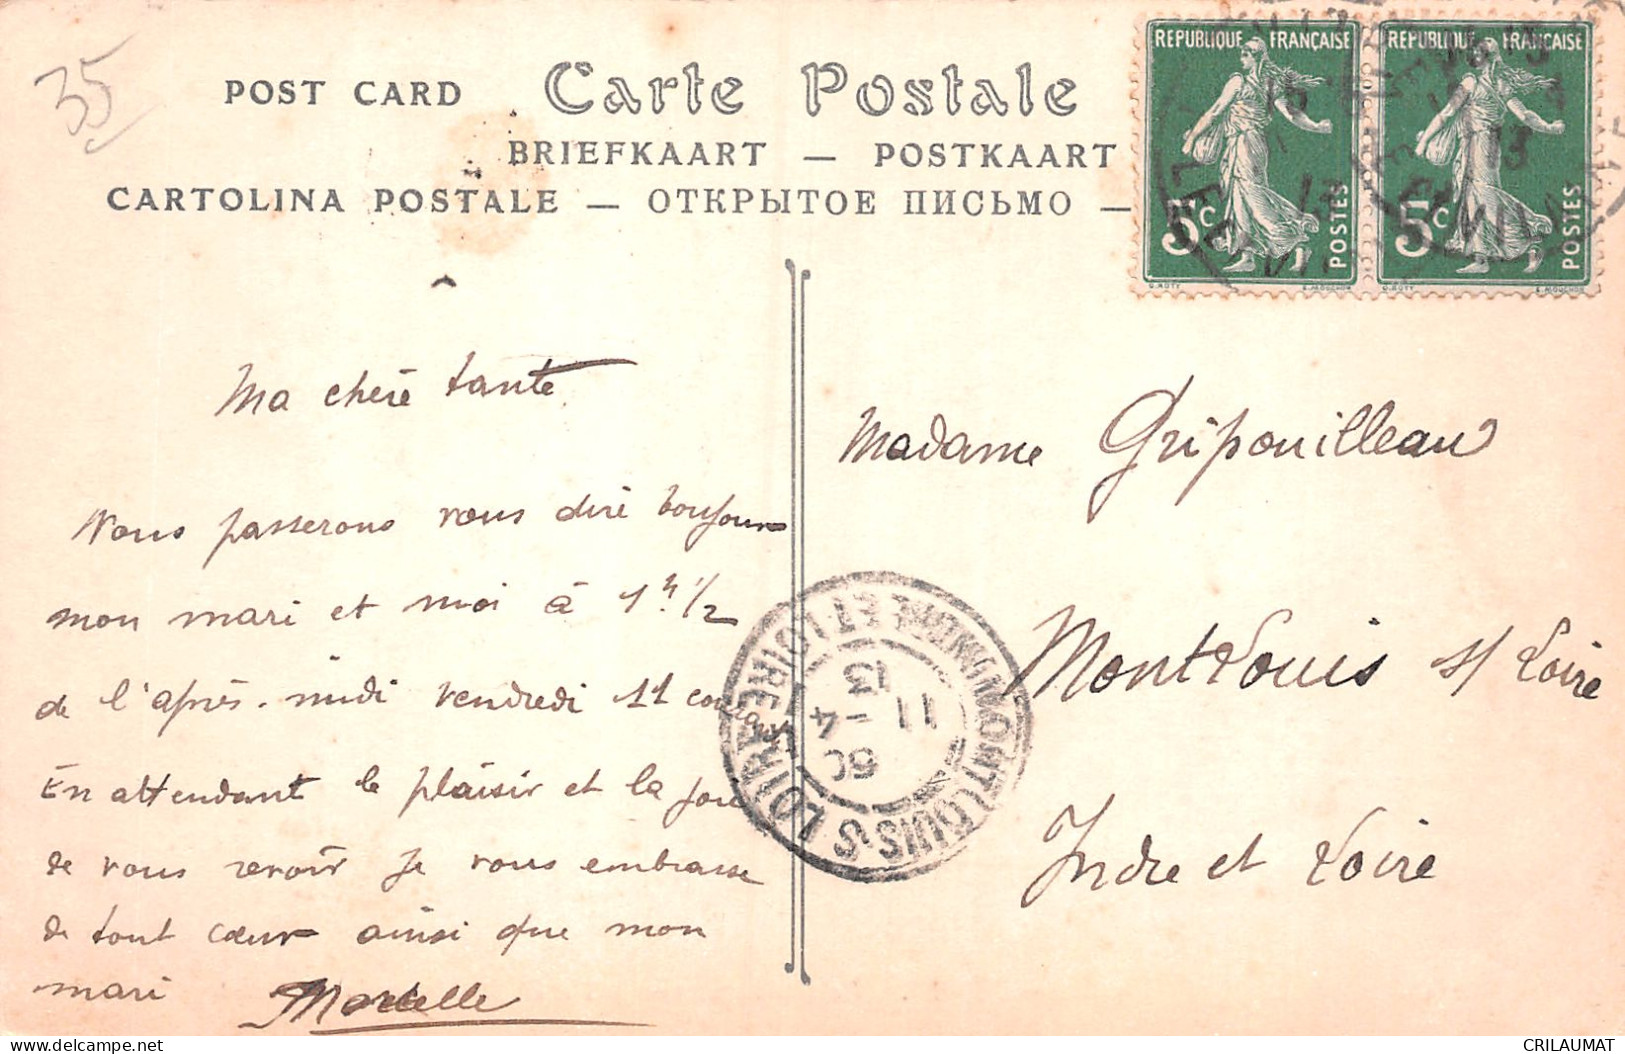 35
POST CARD Carte Postale
BRIEFKAART — POSTKAART
CARTOLINA POSTALE — ОТКРЫТОЕ ПИСЬМО —
REPUBLIQUE FRANÇAISE
5c POSTES
O. ROTY E. MOUCHON
REPUBLIQUE FRANÇAISE
5c POSTES
O. ROTY E. MOUCHON
13
Ma chère tante
Nous passerons vous dire bonjour
mon mari et moi à 1h 1/2
de l'après-midi vendredi 11 courant
En attendant le plaisir et la joie
de vous revoir je vous embrasse
de tout cœur ainsi que mon
mari Marcelle
Madame Gripouilleau
MontLouis s/ Loire
Indre et Loire
MONTLOUIS-S-LOIRE
INDRE ET LOIRE
11 - 4
13
CRILAUMAT